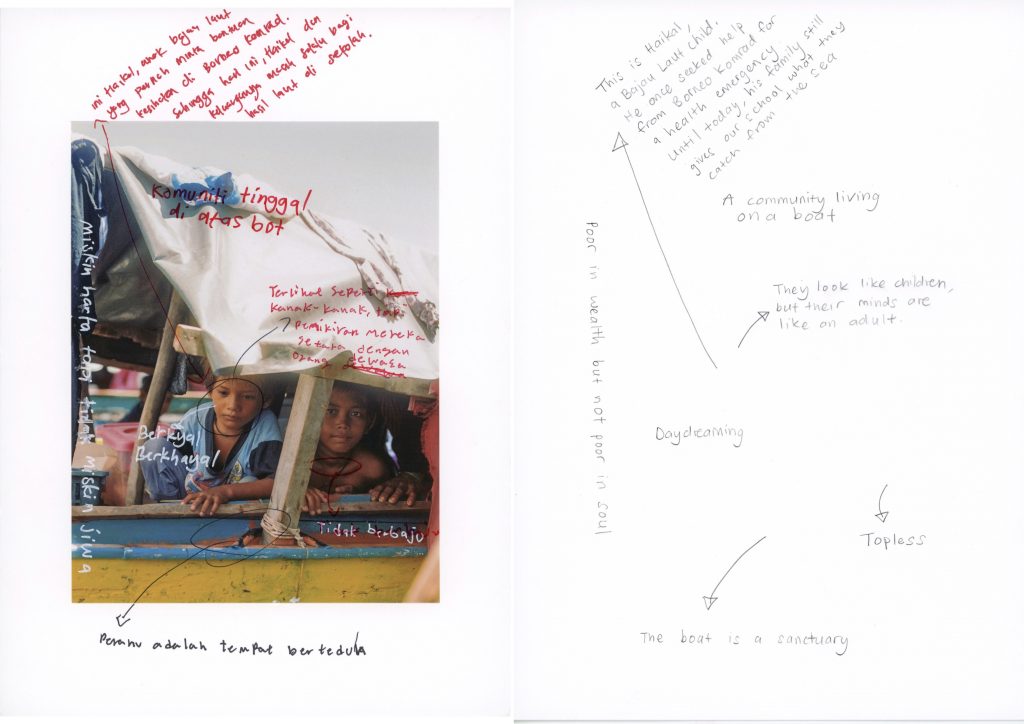 ini Haikal, anak bajau laut
yang pernah minta bantuan
kesihatan di Borneo Komrad.
Sehingga hari ini, Haikal dan
keluarganya masih selalu bagi
hasil laut di sekolah.
Komuniti tinggal
di atas bot
Terlihat seperti
kanak-kanak, tapi
pemikiran mereka
setara dengan
orang dewasa
miskin harta tapi tidak miskin jiwa
Berkhayal
Tidak berbaju
Perahu adalah tempat berteduh
This is Haikal,
a Bajau Laut child.
He once seeked help
from Borneo Komrad for
a health emergency
Until today, his family still
gives our school what they
catch from the sea
A community living
on a boat
They look like children,
but their minds are
like an adult.
Poor in wealth but not poor in soul
Daydreaming
Topless
The boat is a sanctuary